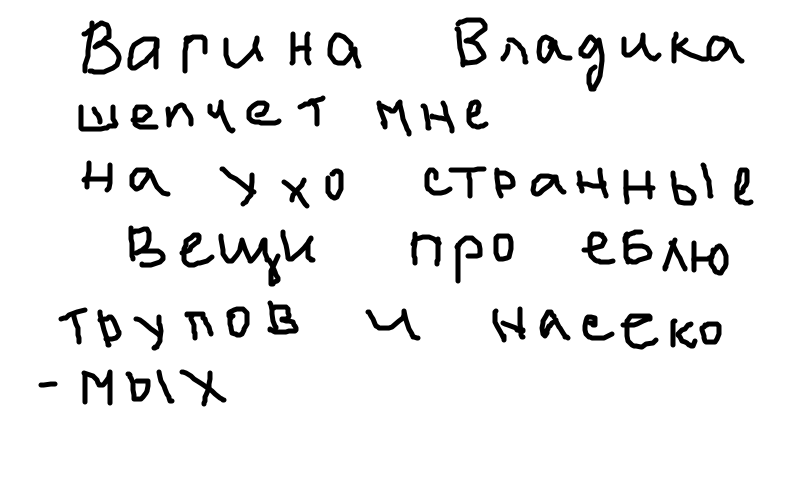 Вагина Владика
шепчет мне
на ухо странные
вещи про еблю
трупов и насеко
-мых